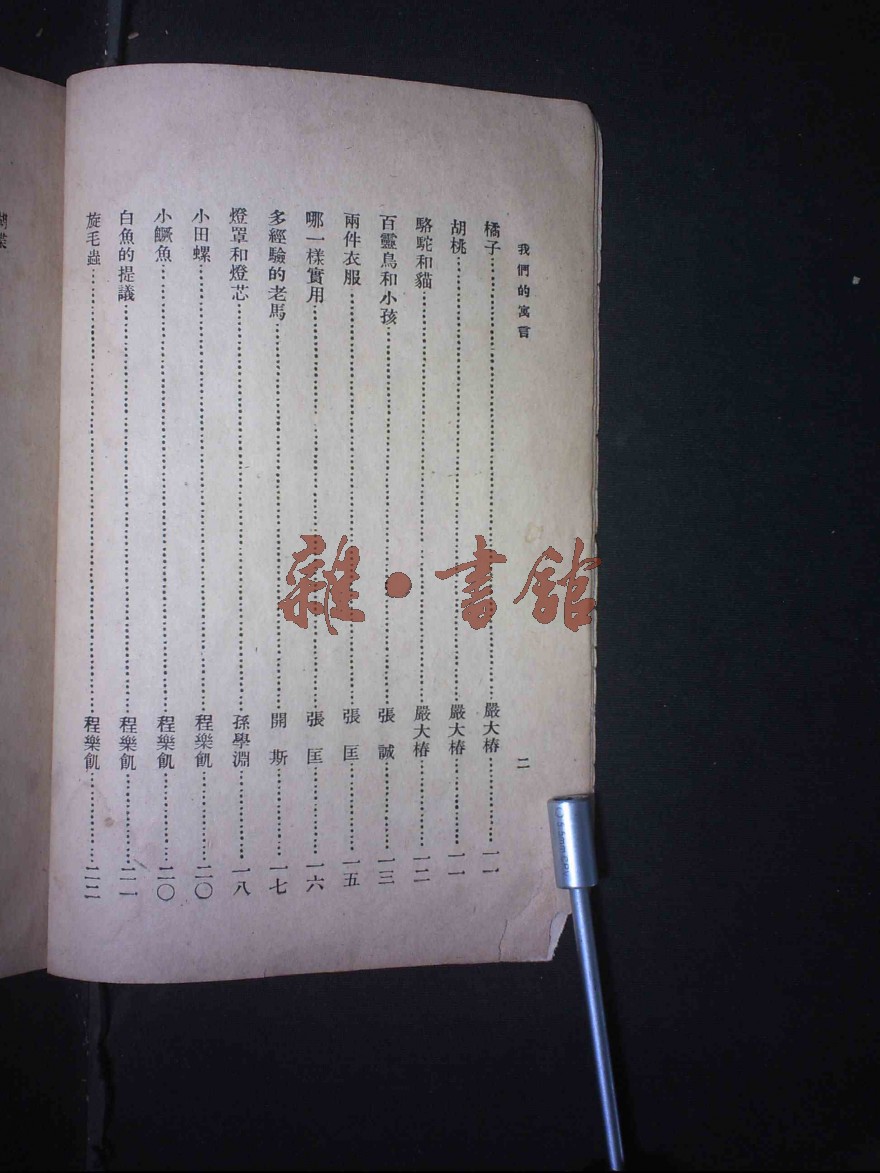 我們的寓言
二
橘子 嚴大椿 一一
胡桃 嚴大椿 一一
駱駝和貓 嚴大椿 一二
百靈鳥和小孩 張誠 一三
兩件衣服 張匡 一五
哪一樣實用 張匡 一六
多經驗的老馬 開斯 一七
燈罩和燈芯 孫學淵 一八
小田螺 程樂飢 二〇
小鱖魚 程樂飢 二〇
白魚的提議 程樂飢 二一
旋毛蟲 程樂飢 二二
雜·書館